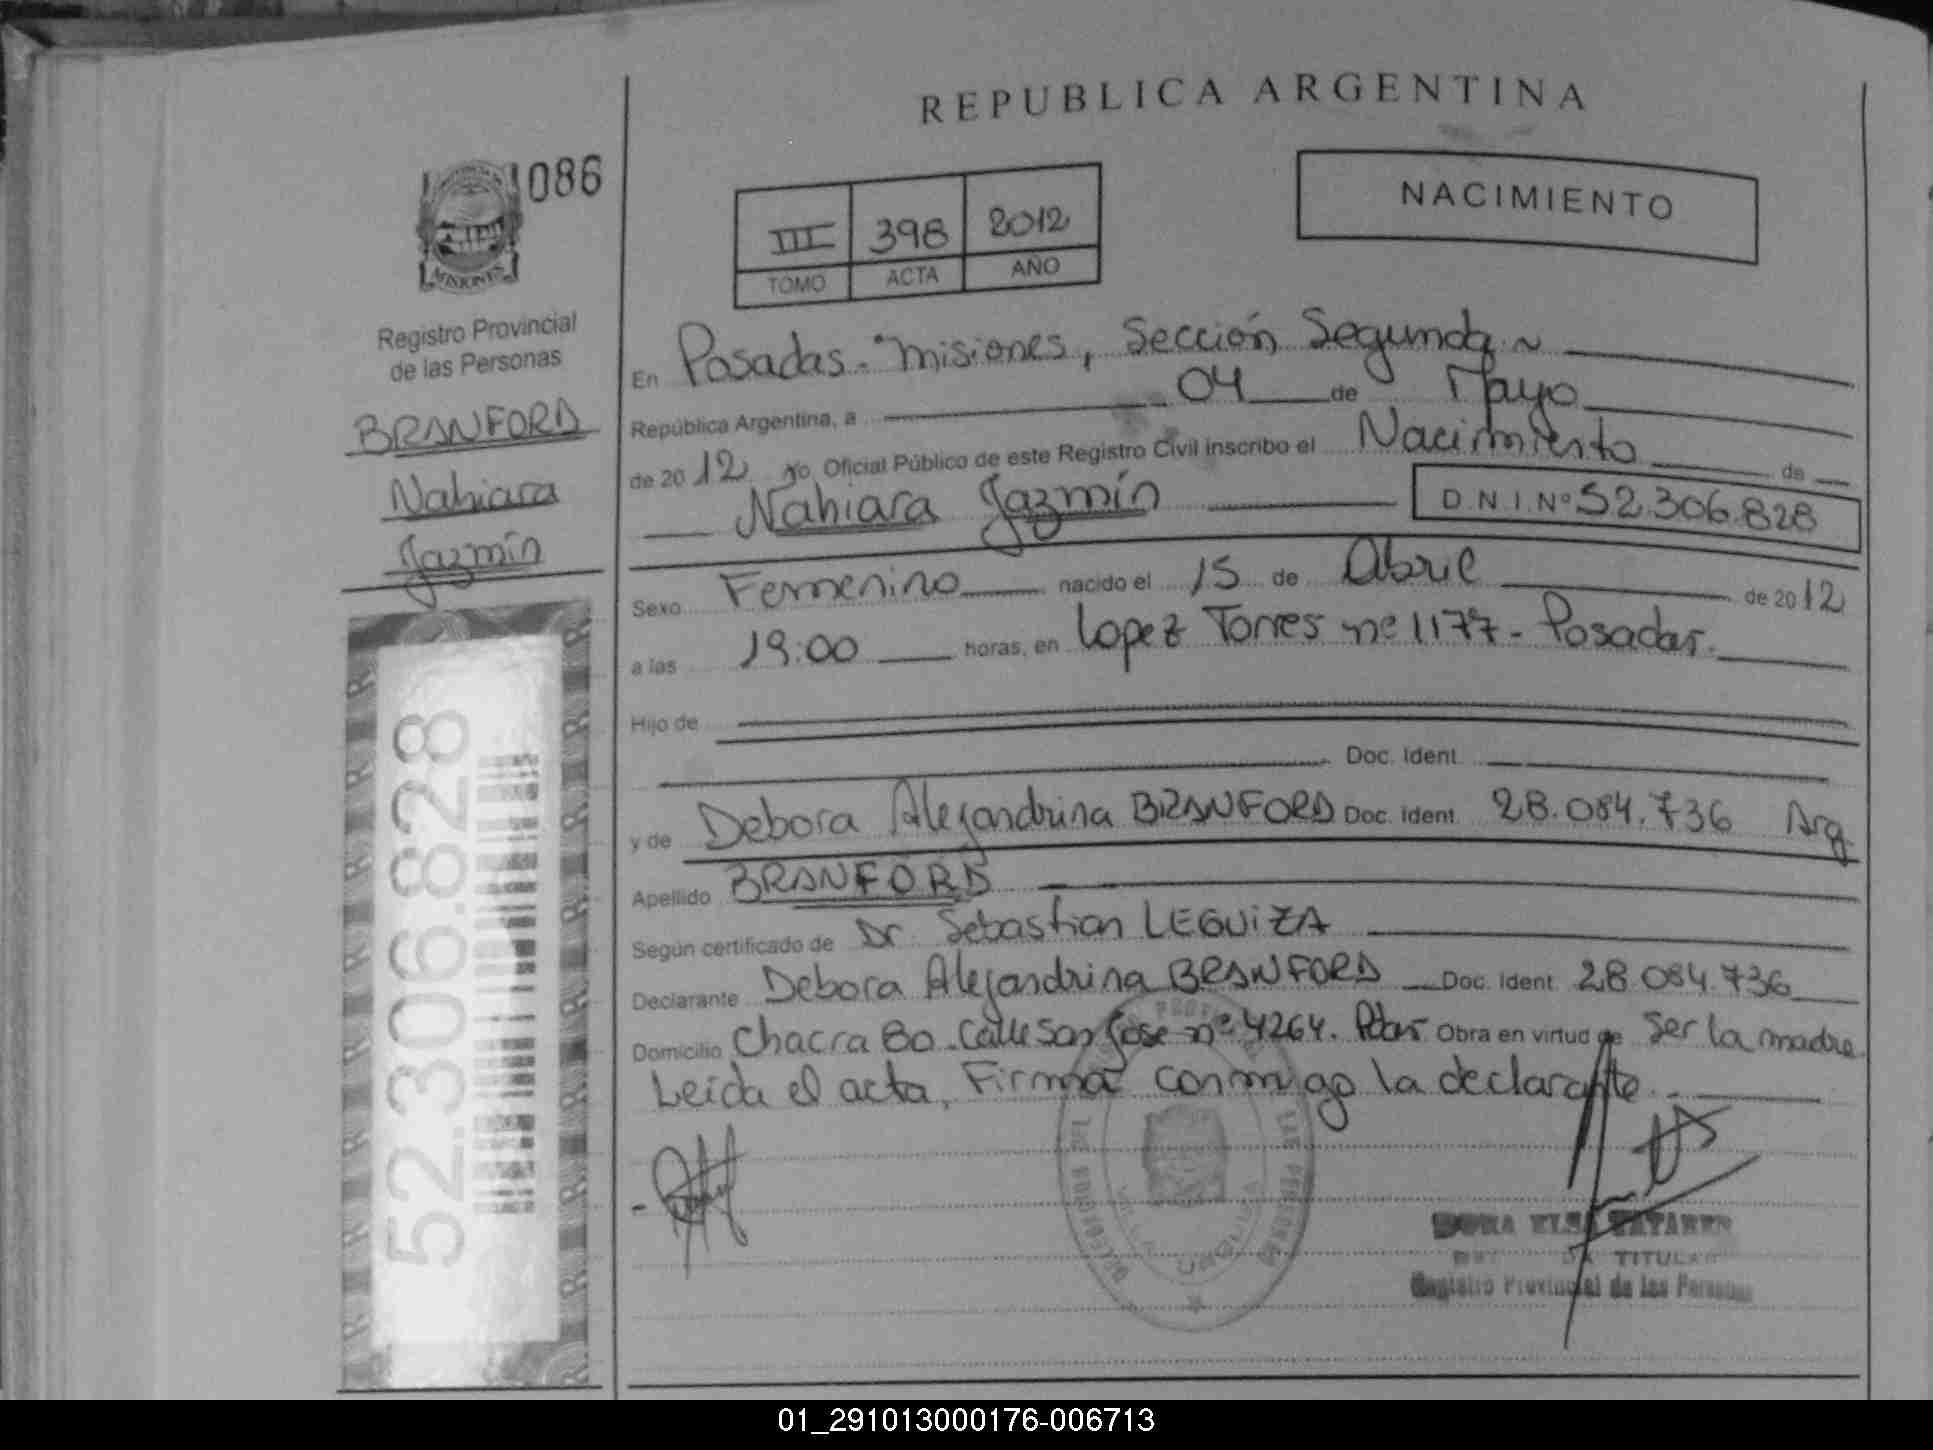 REPUBLICA ARGENTINA
086
NACIMIENTO
III 398 2012
TOMO ACTA AÑO
MISIONES
Registro Provincial
de las Personas
BRANFORD
Nahiara
Jazmín
En Posadas - Misiones, Sección Segunda
República Argentina, a 04 de Mayo
de 2012 yo Oficial Público de este Registro Civil inscribo el Nacimiento de
Nahiara Jazmín D.N.I. Nº 52.306.828
Sexo Femenino nacido el 15 de Abril de 2012
a las 19:00 horas, en Lopez Torres nº 1177 - Posadas.
Hijo de
Doc. Ident.
y de Debora Alejandrina BRANFORD Doc. Ident. 28.084.736 Arg.
Apellido BRANFORD
Según certificado de Dr. Sebastian LEGUIZA
Declarante Debora Alejandrina BRANFORD Doc. Ident. 28.084.736
Domicilio Chacra 80. Calle San Jose nº 4264. Pdas Obra en virtud de Ser la madre.
Leída el acta, Firma conmigo la declarante.
52.306.828
TITULAR
Registro Provincial de las Personas
01_291013000176-006713